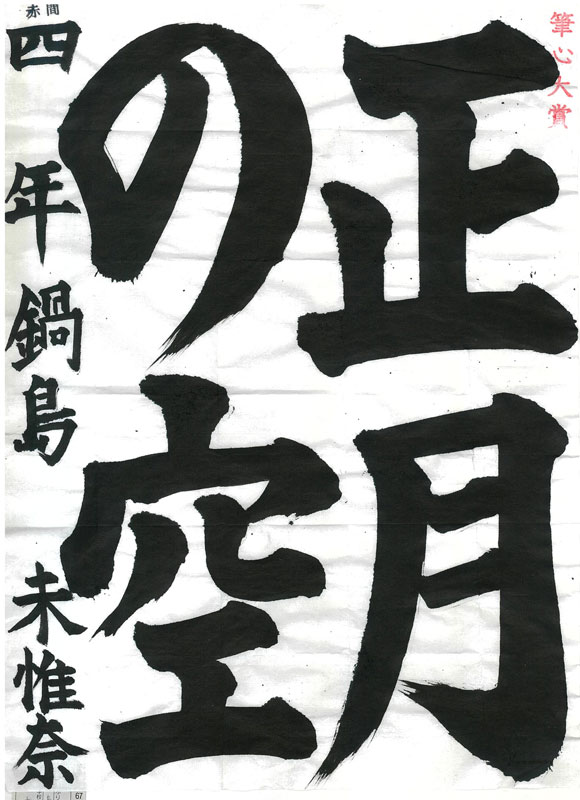 筆心大賞
正月
の空
赤間
四年鍋島未惟奈
67